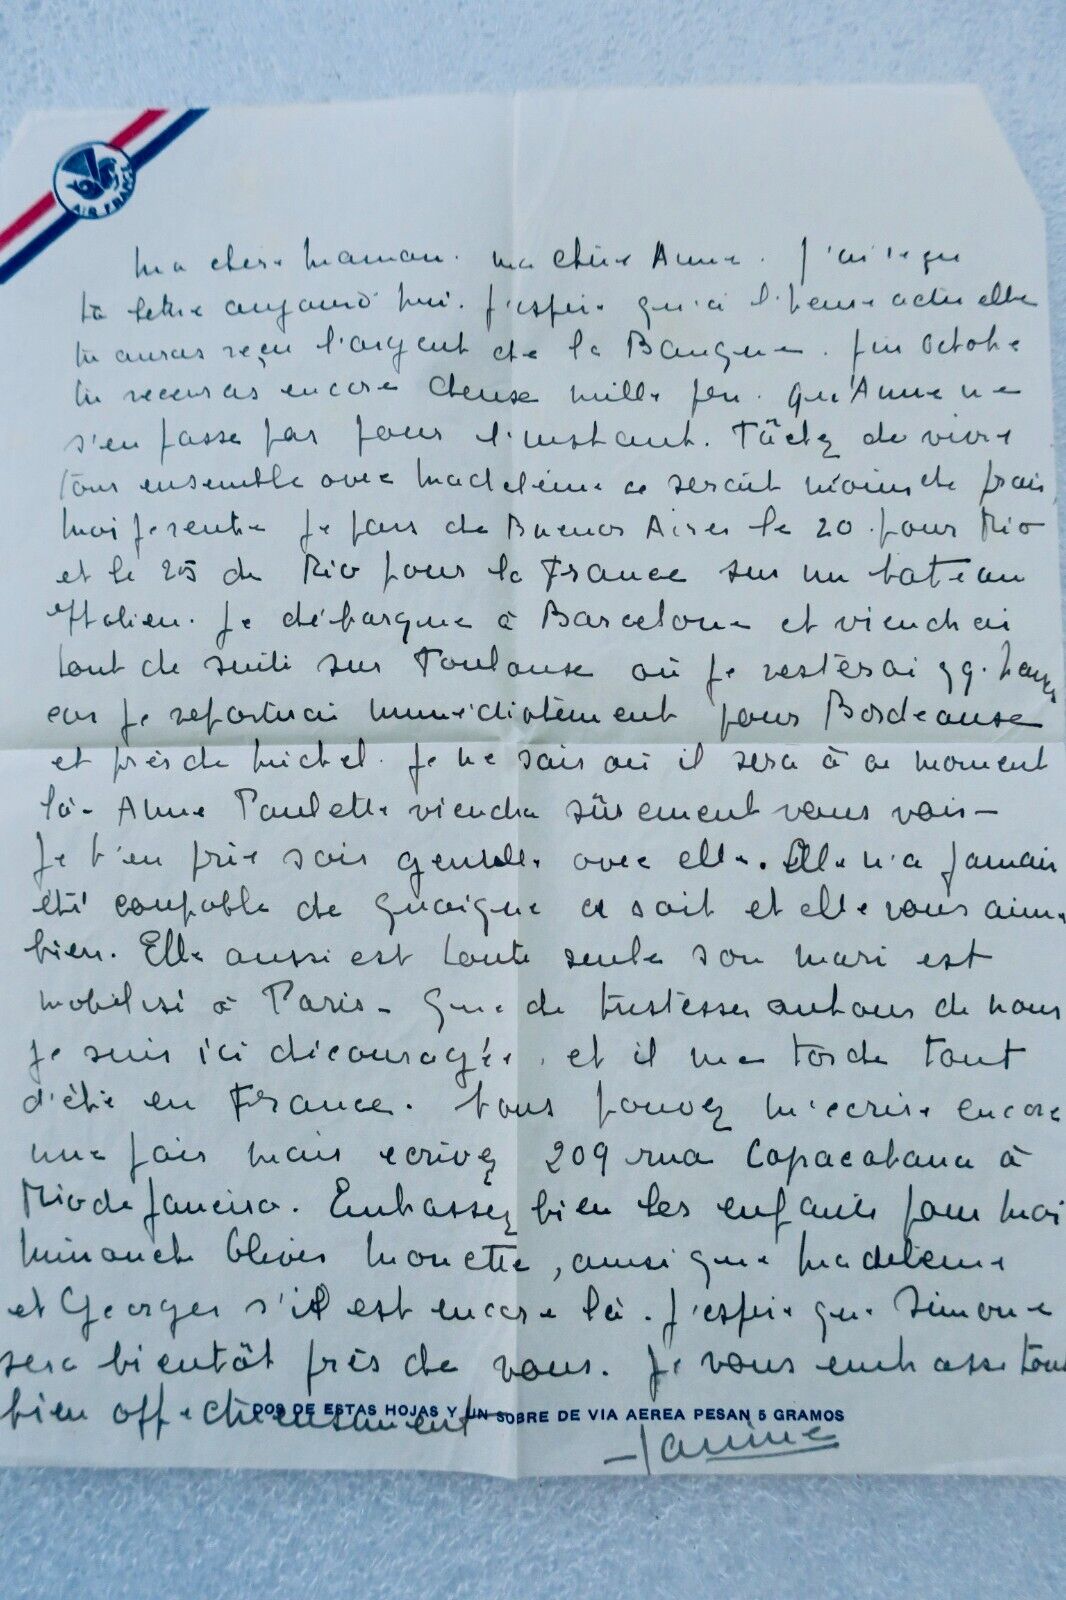 AIR FRANCE
Ma chère Maman. Ma chère Anne. J'ai reçu
ta lettre aujourd'hui. J'espère qu'à l'heure actuelle
tu auras reçu l'argent de la Banque. Fin Octobre
tu recevras encore deux mille frs. Qu'Anne ne
s'en fasse pas pour l'instant. Tâchez de vivre
tous ensemble avec Madeleine ce serait moins de frais
Moi je rentre je pars de Buenos Aires le 20 pour Rio
et le 25 de Rio pour la France sur un bateau
Italien. Je débarque à Barcelone et viendrai
tout de suite sur Toulouse où je resterai qq. heures
car je repartirai immédiatement pour Bordeaux
et près de Michel. Je ne sais où il sera à ce moment
là - Anne Paulette viendra sûrement vous voir -
Je t'en prie sois gentille avec elle. Elle n'a jamais
été coupable de quoique ce soit et elle vous aime
bien. Elle aussi est toute seule son mari est
mobilisé à Paris - Que de tristesses autour de nous
Je suis ici découragée, et il me tarde tant
d'être en France. Vous pouvez m'écrire encore
une fois mais écrivez 209 rua Copacabana à
Rio de Janeiro. Embrassez bien les enfants pour moi
Minouche Olivier Monette, ainsi que Madeleine
et Georges s'il est encore là. J'espère que Simone
sera bientôt près de vous. Je vous embrasse tous
bien affectueusement
DOS DE ESTAS HOJAS Y UN SOBRE DE VIA AEREA PESAN 5 GRAMOS
Janine